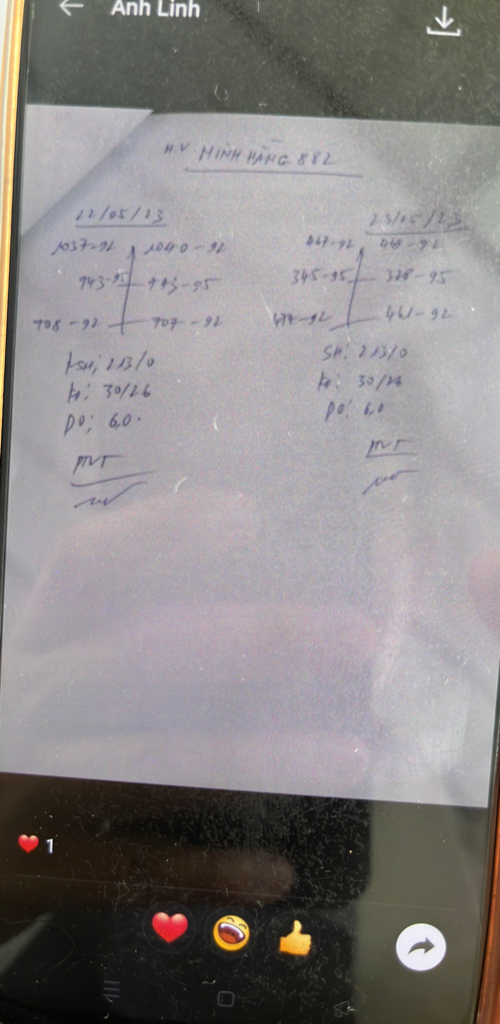 Anh Linh
M.V MINH HẰNG 882
22/05/23
1037-92 1040-92
943-95 943-95
908-92 907-92
SH: 213/0
30/26
DO: 6,0.
23/05/23
467-92 469-92
345-95 328-95
477-92 461-92
SH: 213/0
30/26
DO: 6,0
1